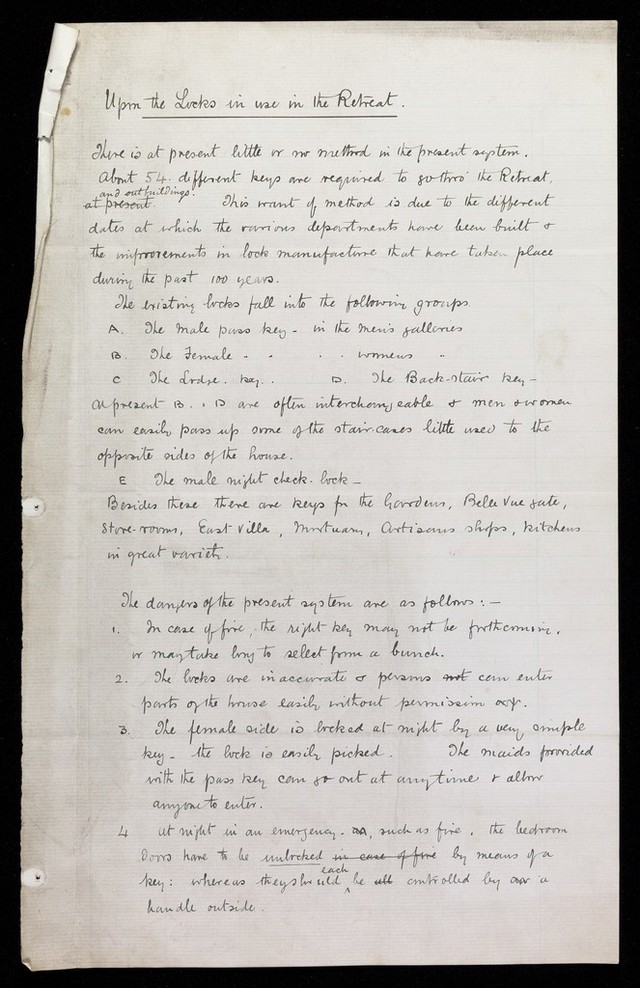 Upon the Locks in use in the Retreat.
There is at present little or no method in the present system.
About 54 different keys are required to go thro' the Retreat,
and outbuildings.
at present. This want of method is due to the different
dates at which the various departments have been built &
the improvements in lock manufacture that have taken place
during the past 100 years.
The existing locks fall into the following groups.
A. The Male pass key - in the men's galleries
B. The Female - - . . womens "
C The Lodge. key. . D. The Back-stair key -
At present B. & D are often interchangeable & men & women
can easily pass up some of the stair-cases little used to the
opposite sides of the house.
E The male night check-lock -
Besides these there are keys for the Gardens, Belle Vue gate,
Store-rooms, East Villa, Mortuary, Artisans shops, kitchens
in great variety.
The dangers of the present system are as follows: -
1. In case of fire, the right key may not be forthcoming,
or may take long to select from a bunch.
2. The locks are inaccurate & persons not can enter
parts of the house easily without permission
3. The female side is locked at night by a very simple
key - the lock is easily picked. The maids provided
with the pass key can go out at any time & allow
anyone to enter.
4 At night in an emergency. such as fire, the bedroom
doors have to be unlocked in case of fire by means of a
each
key: whereas they should be all controlled by a
handle outside.